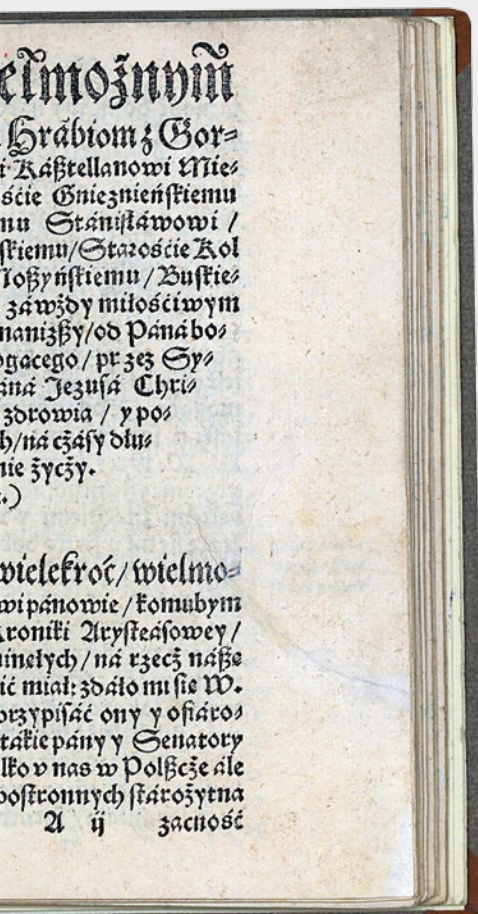 elmożnym̃
Hrábiom z Gor⸗
i Káßtellanowi Mie⸗
ośćie Gnieznieńskiemu
nu Stánisławowi /
skiemu / Stárośćie Kol
Noßyńskiemu / Buskie⸗
záwżdy miłośćiwym
nanizßy / od Páná bo⸗
ogącego / przez Sy⸗
áná Jezusá Chri⸗
zdrowia / y po⸗
h / ná cżásy dłu⸗
nie życży.
.)
wielekroć / wielmo⸗
wi pánowie / komubym
Kroniki Arysteásowey /
minełych / ná rzecż náße
ić miał: zdáło mi sie W.
przypisáć ony y ofiáro⸗
tákie pány y Senatory
lko v nas w Polßcże ále
postronnych stárożytna
A ij zacność